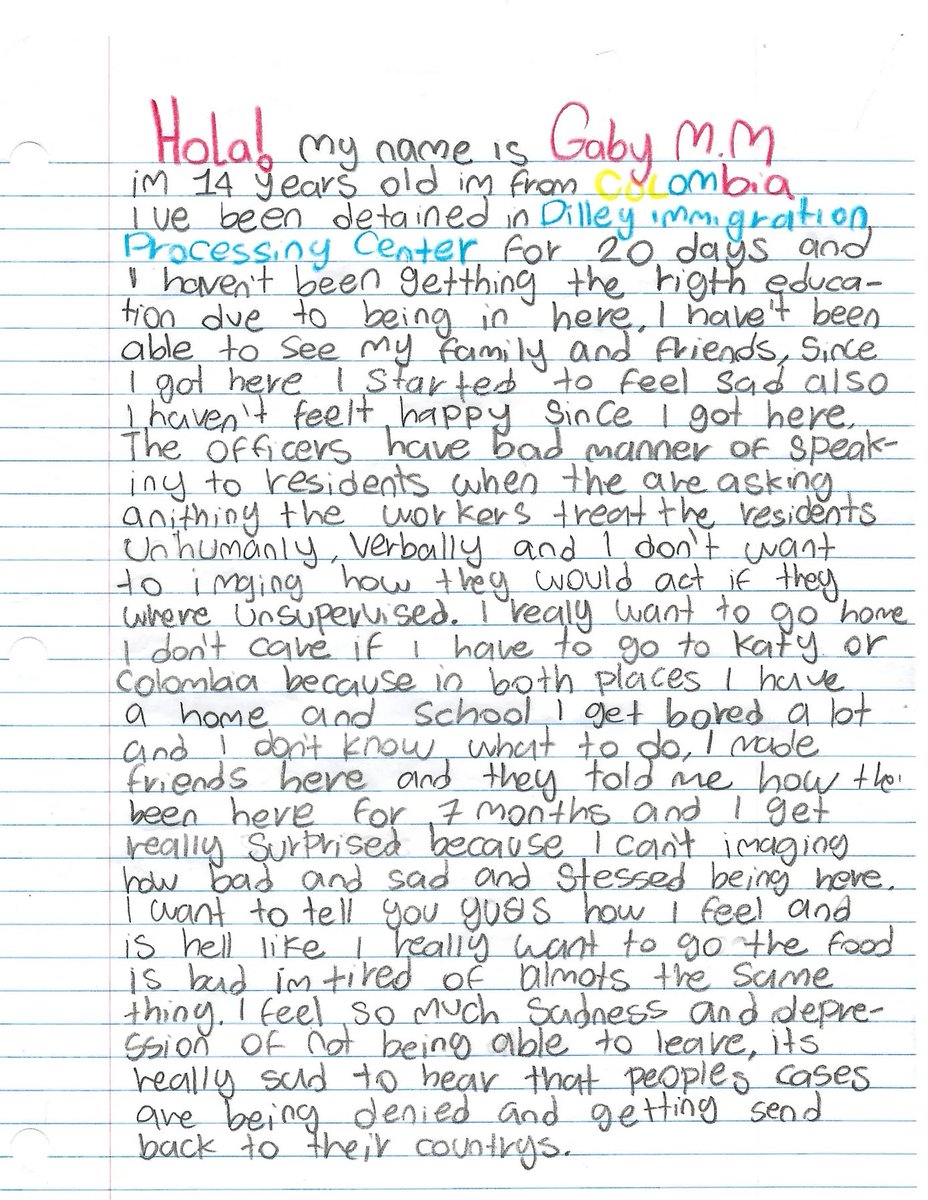 Hola! my name is Gaby M.M
im 14 years old im from COLombia
I've been detained in Dilley immigration
Processing Center for 20 days and
I haven't been getthing the rigth educa-
tion due to being in here, I have't been
able to see my family and friends, Since
I got here I Started to feel sad also
I haven't feelt happy Since I got here.
The officers have bad manner of speak-
iny to residents when the are asking
anithing the workers treat the residents
Unhumanly, Verbally and I don't want
to imging how they would act if they
where unsupervised. I realy want to go home
I don't care if I have to go to Katy or
Colombia because in both places I have
a home and School I get bored a lot
and I don't know what to do, I made
friends here and they told me how the
been here for 7 months and I get
really Surprised because I can't imaging
how bad and sad and Stessed being here.
I want to tell you guys how I feel and
is hell like I really want to go the food
is bad im tired of almots the same
thing. I feel so much Sadness and depre-
ssion of not being able to leave, its
really sad to hear that peoples cases
are being denied and getting send
back to their countrys.